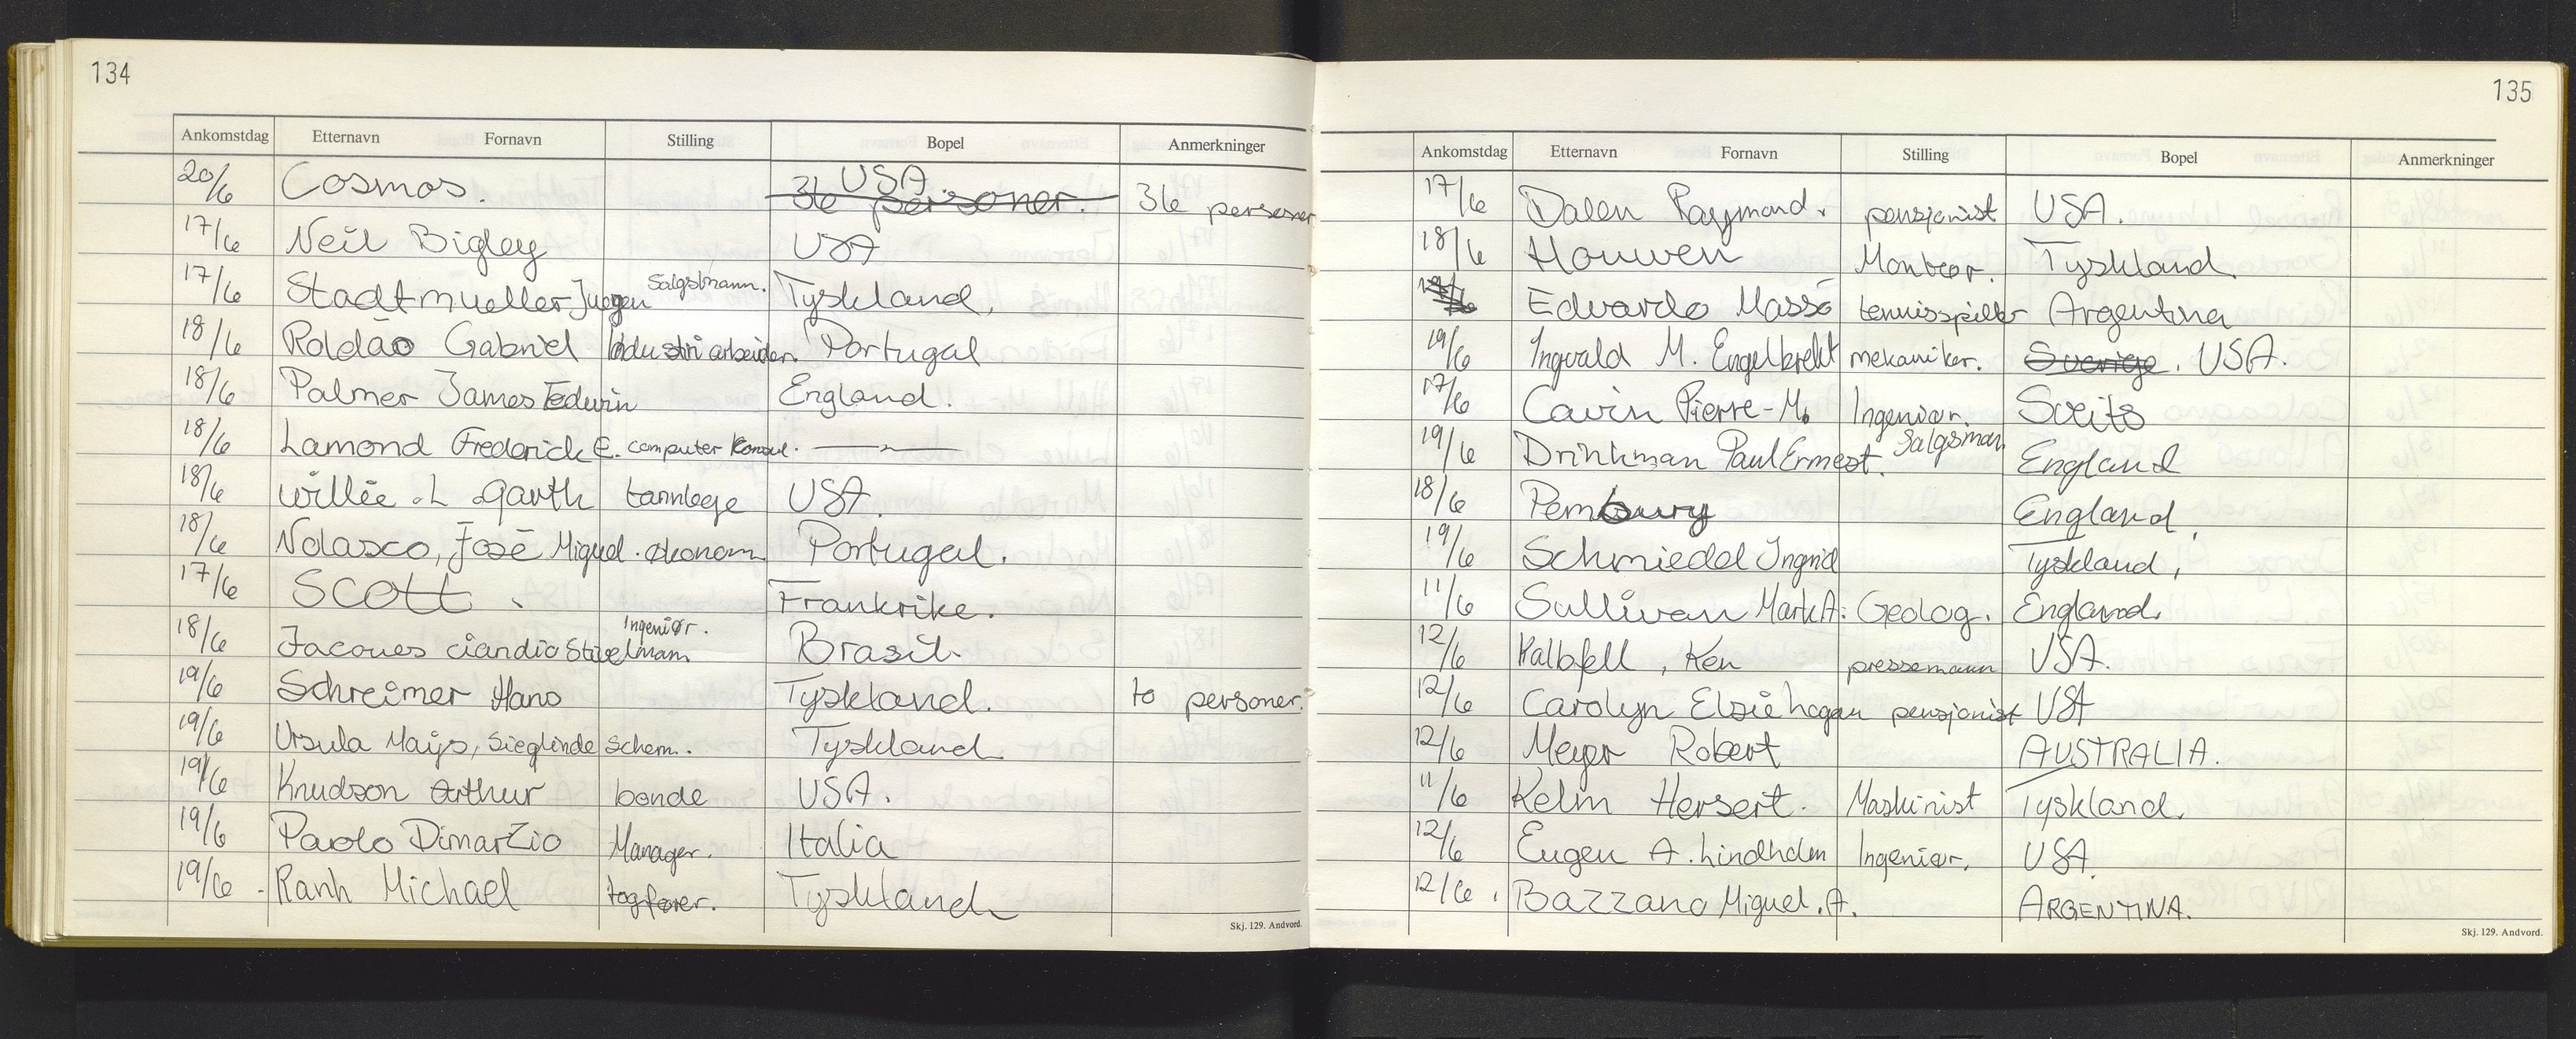 134
Ankomstdag Etternavn Fornavn Stilling Bopel Anmerkninger
20/6 Cosmos. USA. 36 personer. 36 personer
17/6 Neil Bigley USA
17/6 Stadtmueller Juegen Salgsmann. Tyskland.
18/6 Roldão Gabriel Industriarbeider. Portugal
18/6 Palmer James Edwin England.
18/6 Lamond Frederick E. computer Konsul. —"—
18/6 Willie . L Garth tannlege USA.
18/6 Nolasco, José Miguel. økonom. Portugal.
17/6 Scott. Frankrike.
18/6 Jacques ciandio Stivelmam Ingeniør. Brasil.
19/6 Schreimer Hans Tyskland. to personer.
19/6 Ursula Maijs, Sieglinde Schem. Tyskland.
19/6 Knudson Arthur bonde USA.
19/6 Paolo Dimarzio Manager. Italia
19/6 Ranh Michael togfører. Tyskland
Skj. 129. Andvord.
135
Ankomstdag Etternavn Fornavn Stilling Bopel Anmerkninger
17/6 Dalen Raymond. pensjonist USA.
18/6 Houwen Montør. Tyskland.
Edvardo Massó tennisspiller Argentina
19/6 Ingvald M. Engelbrekt mekaniker. Sverige. USA.
17/6 Cavin Pierre-M. Ingeniør. Sveits
19/6 Drinkman Paul Ernest. Salgsman England
18/6 Pembury England.
19/6 Schmiedel Ingrid Tyskland.
11/6 Sullivan Mark A. Geolog. England.
12/6 Kalbfell, Ken pressemann USA.
12/6 Carolyn Elsie hogan pensjonist USA
12/6 Meyer Robert AUSTRALIA.
11/6 Kelm Hersert. Maskinist Tyskland.
12/6 Eugen A. Lindholm Ingeniør. USA.
12/6 Bazzano Miguel. A. ARGENTINA.
Skj. 129. Andvord.